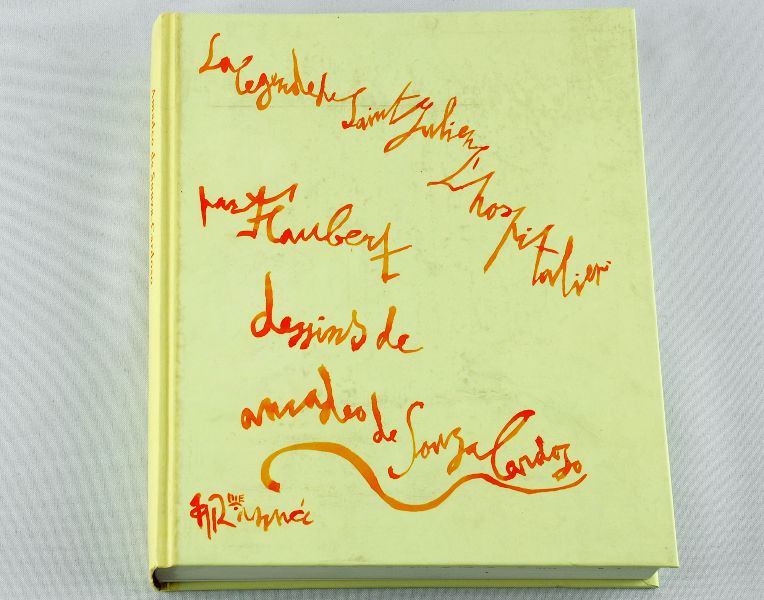 La Légende de Saint Julien
L'hospitalier
par Flaubert
dessins de
amadeo de Souza Cardozo